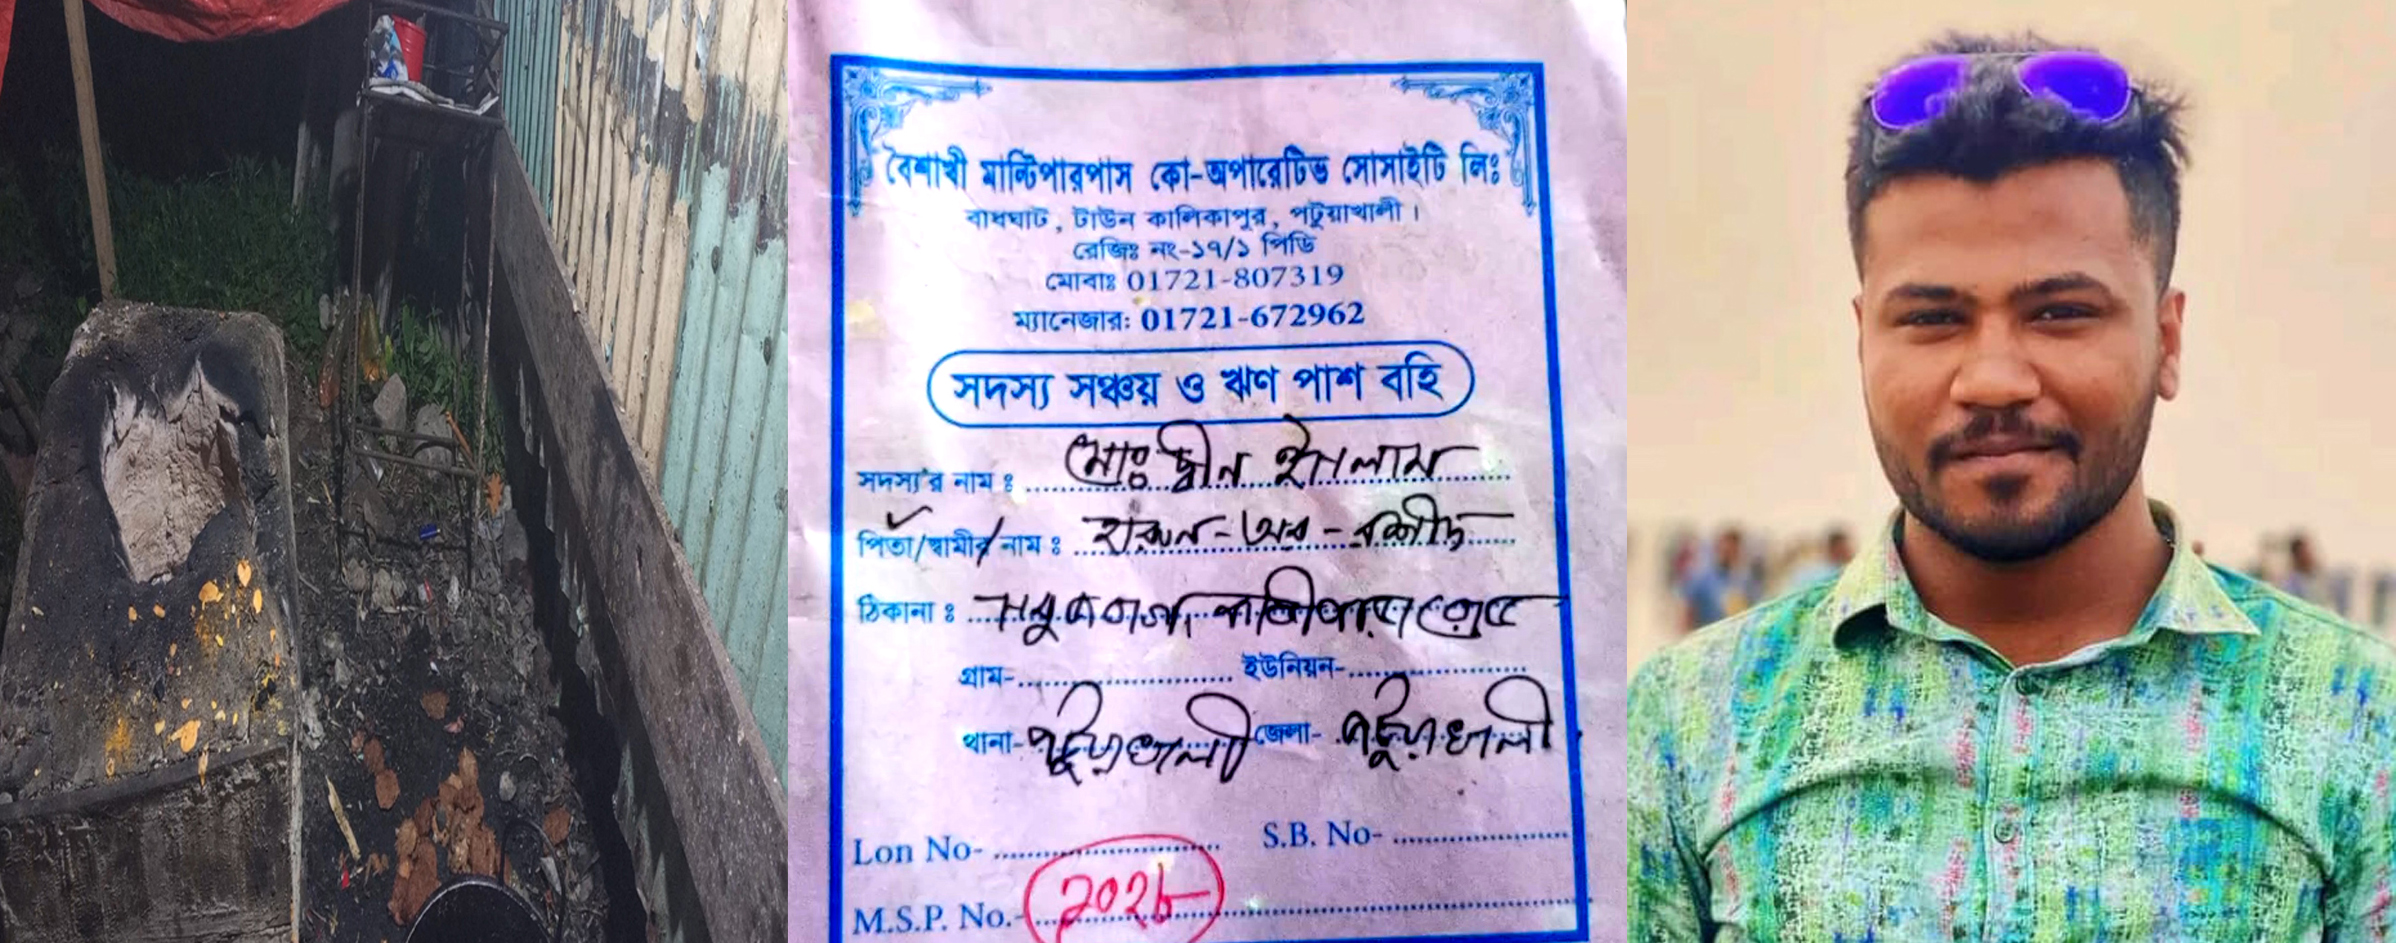 বৈশাখী মাল্টিপারপাস কো-অপারেটিভ সোসাইটি লিঃ
বাধঘাট, টাউন কালিকাপুর, পটুয়াখালী।
রেজিঃ নং-১৭/১ পিডি
মোবাঃ 01721-807319
ম্যানেজার: 01721-672962
সদস্য সঞ্চয় ও ঋণ পাশ বহি
সদস্য'র নাম ঃ মোঃ দ্বীন ইসলাম
পিতা/স্বামীর নাম ঃ হারুন-অর-রশীদ
ঠিকানা ঃ সবুজবাগ
গ্রাম- ইউনিয়ন-
থানা- পটুয়াখালী জেলা- পটুয়াখালী
Lon No- S.B. No-
M.S.P. No.-